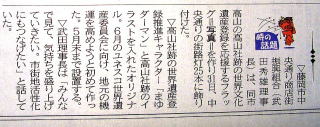 時の話題
▽藤岡市中
央通り商店街
振興組合（武
田秀雄理事
長）は、同市
高山の高山社跡の世界文化
遺産登録を応援するフラッ
グ＝写真＝を作り31日、中
央通りの街路灯25本に飾り
付けた。
▽高山社跡の世界遺産登
録推進キャラクター「まゆ
ダーマン」と高山社跡のイ
ラストを入れたオリジナ
ル。6月のユネスコ世界遺
産委員会に向け、地元の機
運を高めようと初めて作っ
た。5月末まで設置する。
▽武田理事長は「みんな
で見て、気持ちを盛り上げ
ていきたい。市街地活性化
にもつなげたい」と話して
いた。